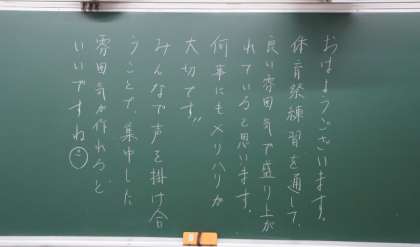 おはようございます。
体育祭練習を通して、
良い雰囲気で盛り上が
れていると思います。
何事にもメリハリが
大切です!!
みんなで声を掛け合
うことで、集中した
雰囲気が作れると、
いいですね